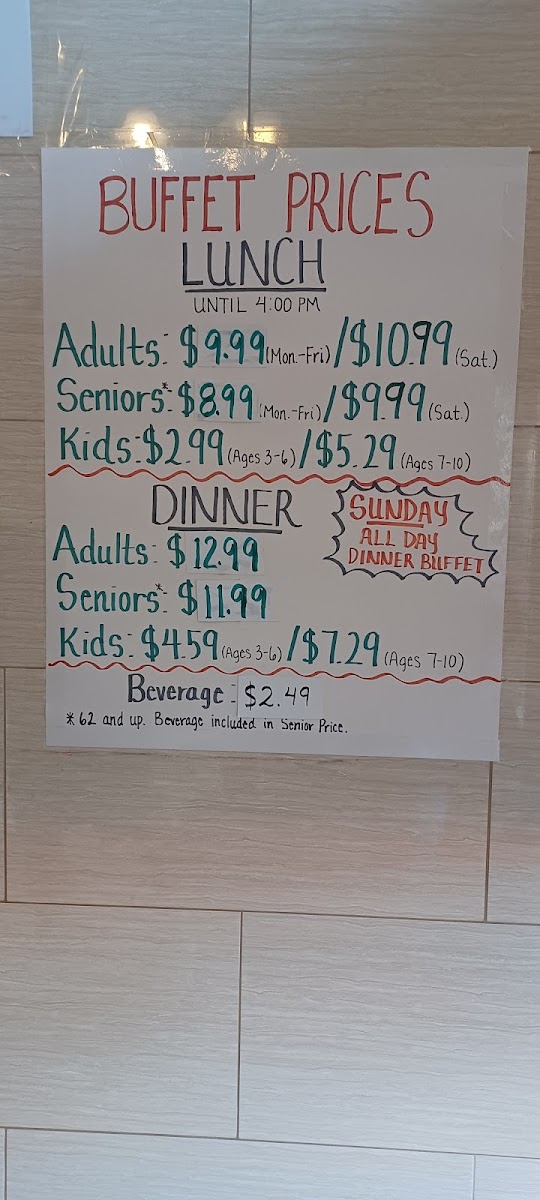 BUFFET PRICES
LUNCH
UNTIL 4:00 PM
Adults: $9.99 (Mon.-Fri) / $10.99 (Sat.)
Seniors*: $8.99 (Mon.-Fri) / $9.99 (Sat.)
Kids: $2.99 (Ages 3-6) / $5.29 (Ages 7-10)
DINNER
SUNDAY
ALL DAY
DINNER BUFFET
Adults: $12.99
Seniors*: $11.99
Kids: $4.59 (Ages 3-6) / $7.29 (Ages 7-10)
Beverage: $2.49
*62 and up. Beverage included in Senior Price.